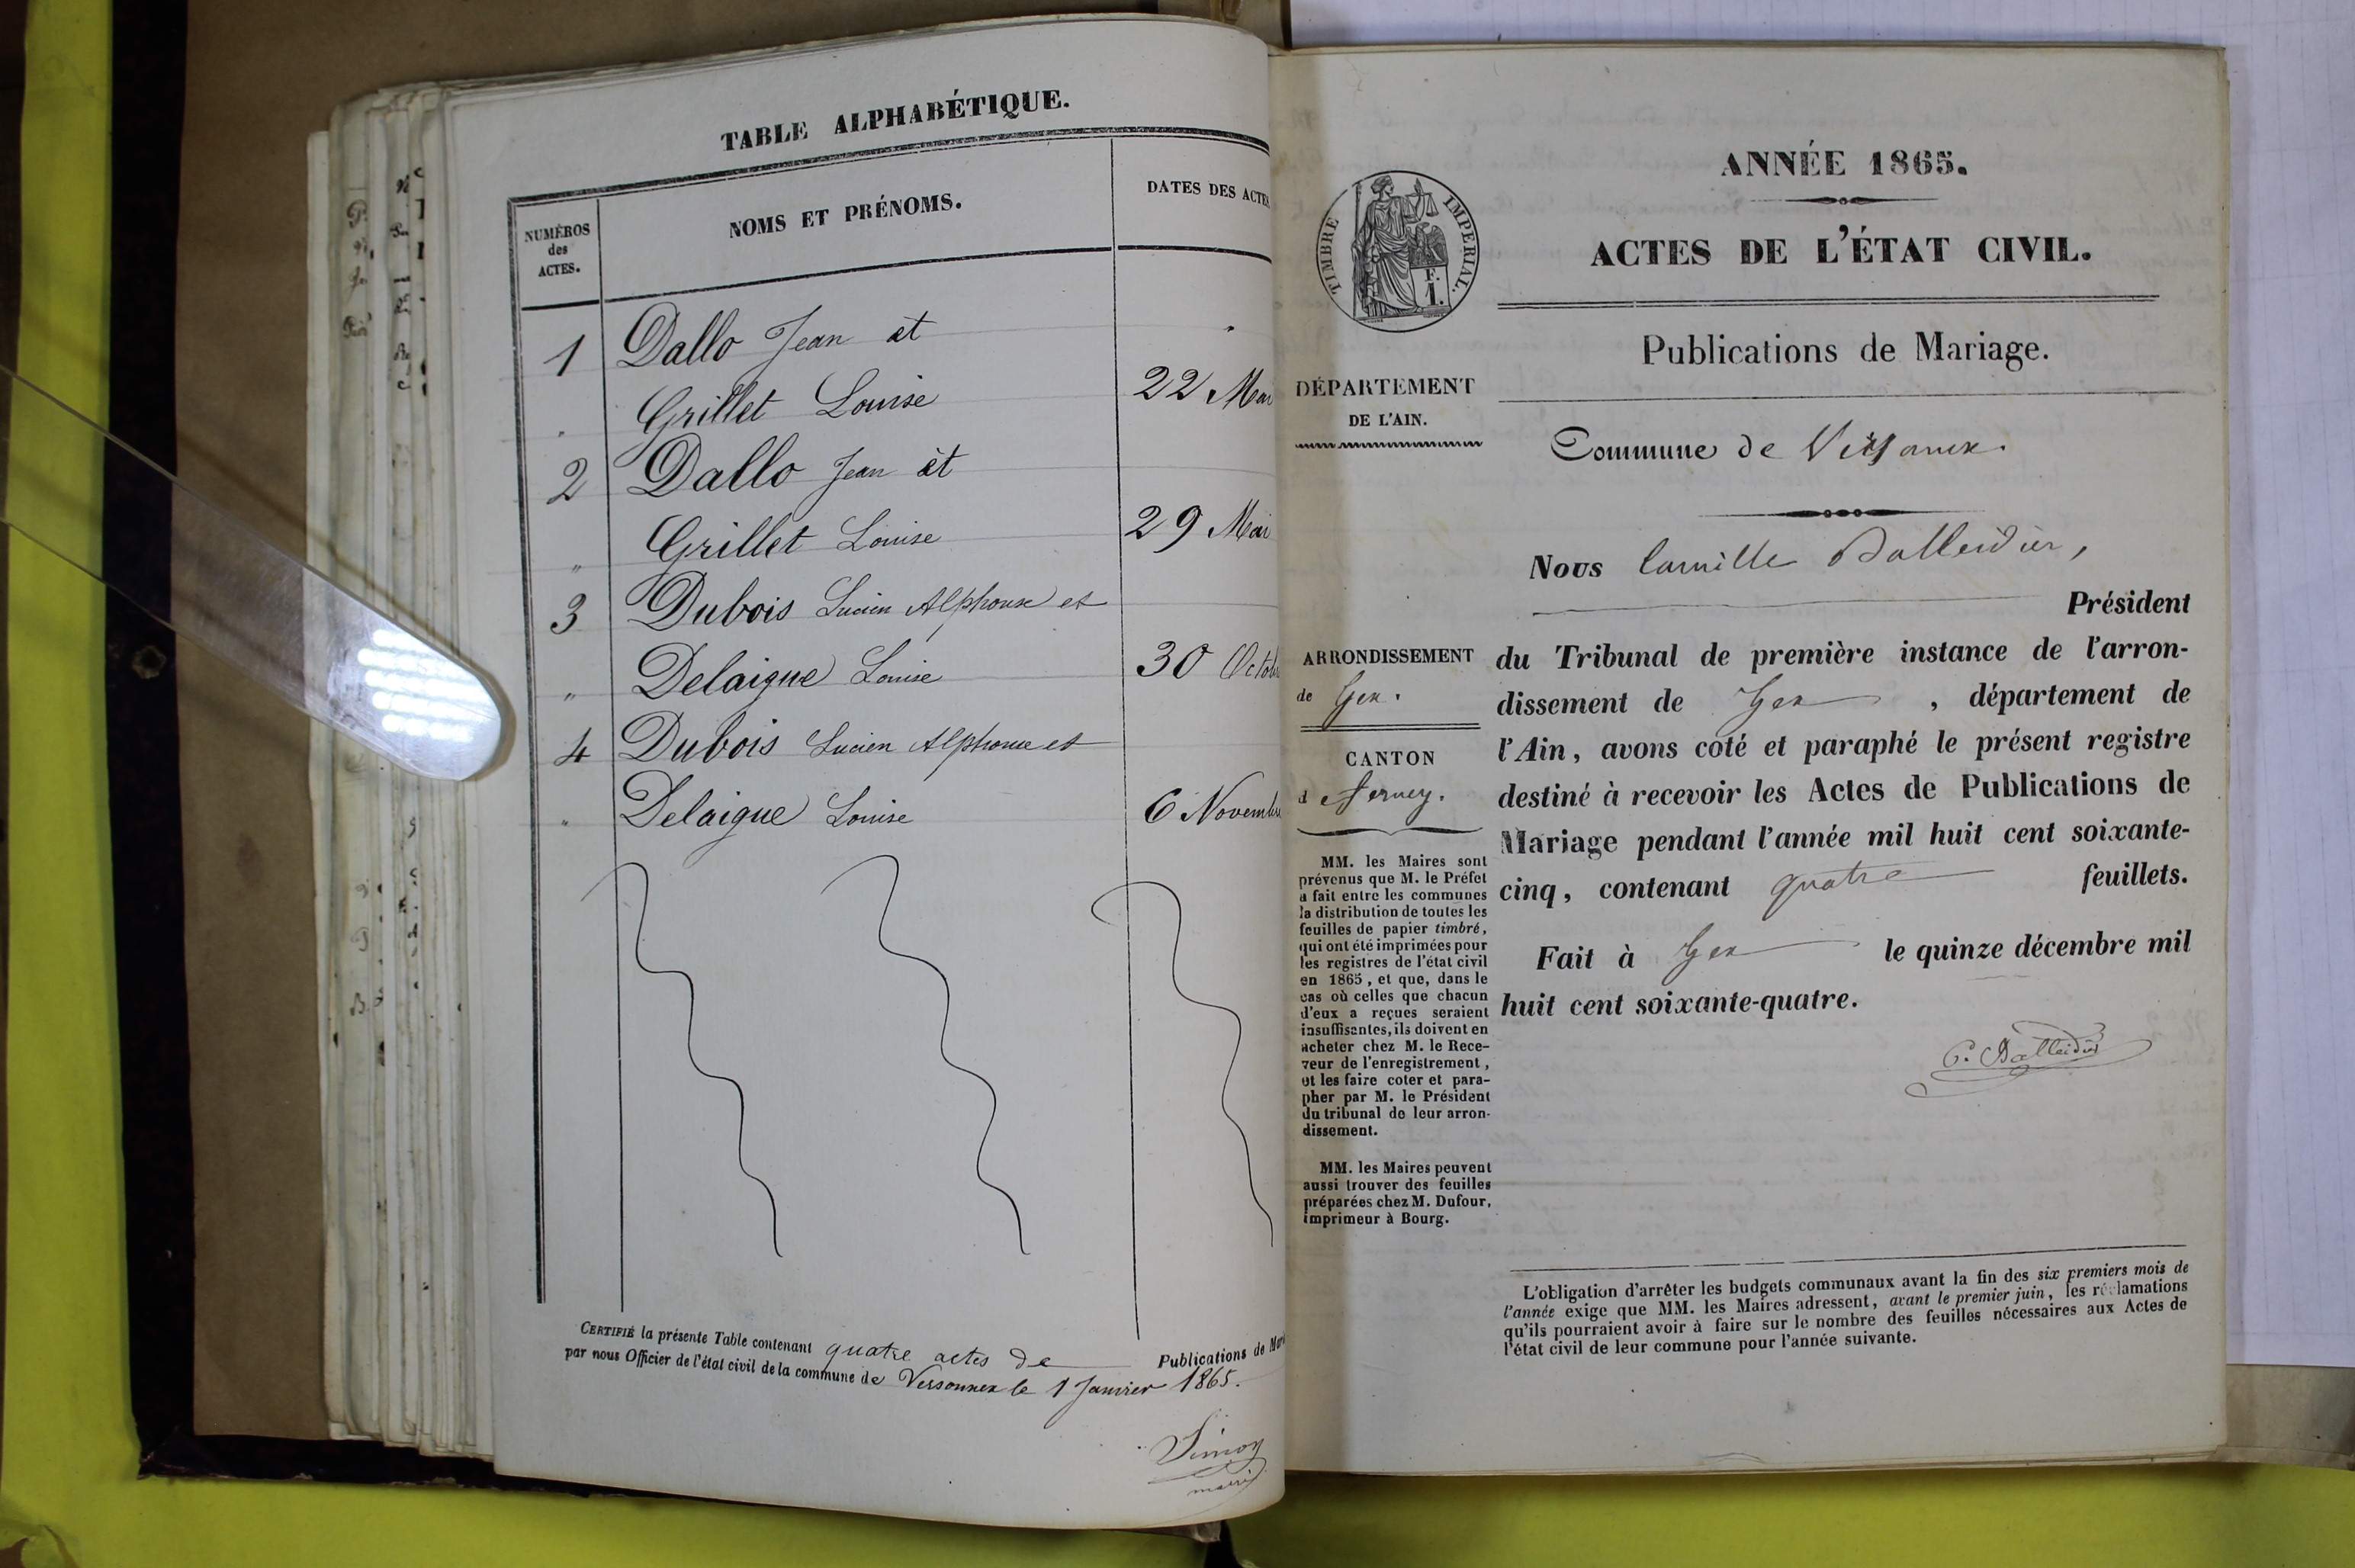 TABLE ALPHABÉTIQUE.
NUMÉROS
des
ACTES.
NOMS ET PRÉNOMS.
DATES DES ACTES
1 Dallo Jean et
" Grillet Louise 22 Mai
2 Dallo Jean et
" Grillet Louise 29 Mai
3 Dubois Lucien Alphonse et
" Delaigue Louise 30 Octob
4 Dubois Lucien Alphonse et
" Delaigue Louise 6 Novembre
CERTIFIÉ la présente Table contenant quatre actes de Publications de Mari
par nous Officier de l'état civil de la commune de Versonnex le 1 Janvier 1865.
Simon
maire
TIMBRE IMPERIAL.
F.
1.
DÉPARTEMENT
DE L'AIN.
ARRONDISSEMENT
de Gex.
CANTON
de Ferney.
MM. les Maires sont
prévenus que M. le Préfet
a fait entre les communes
la distribution de toutes les
feuilles de papier timbré,
qui ont été imprimées pour
les registres de l'état civil
en 1865, et que, dans le
cas où celles que chacun
d'eux a reçues seraient
insuffisantes, ils doivent en
acheter chez M. le Rece-
veur de l'enregistrement,
et les faire coter et para-
pher par M. le Président
du tribunal de leur arron-
dissement.
MM. les Maires peuvent
aussi trouver des feuilles
préparées chez M. Dufour,
imprimeur à Bourg.
ANNÉE 1865.
ACTES DE L'ÉTAT CIVIL.
Publications de Mariage.
Commune de
Nous Camille Balleidier,
Président
du Tribunal de première instance de l'arron-
dissement de Gex, département de
l'Ain, avons coté et paraphé le présent registre
destiné à recevoir les Actes de Publications de
Mariage pendant l'année mil huit cent soixante-
cinq, contenant quatre feuillets.
Fait à Gex le quinze décembre mil
huit cent soixante-quatre.
C. Balleidier
L'obligation d'arrêter les budgets communaux avant la fin des six premiers mois de
l'année exige que MM. les Maires adressent, avant le premier juin, les réclamations
qu'ils pourraient avoir à faire sur le nombre des feuilles nécessaires aux Actes de
l'état civil de leur commune pour l'année suivante.